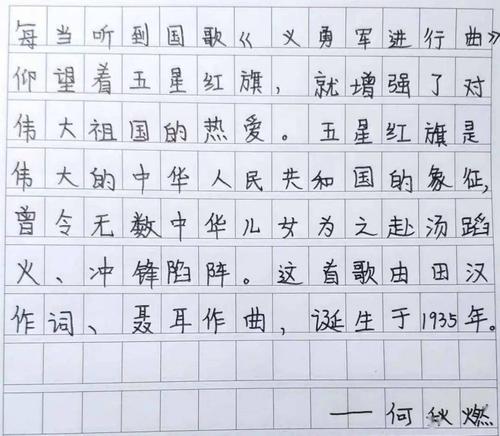 每当听到国歌《义勇军进行曲》
仰望着五星红旗，就增强了对
伟大祖国的热爱。五星红旗是
伟大的中华人民共和国的象征,
曾令无数中华儿女为之赴汤蹈
火、冲锋陷阵。这首歌由田汉
作词、聂耳作曲，诞生于1935年。
——何秋燃